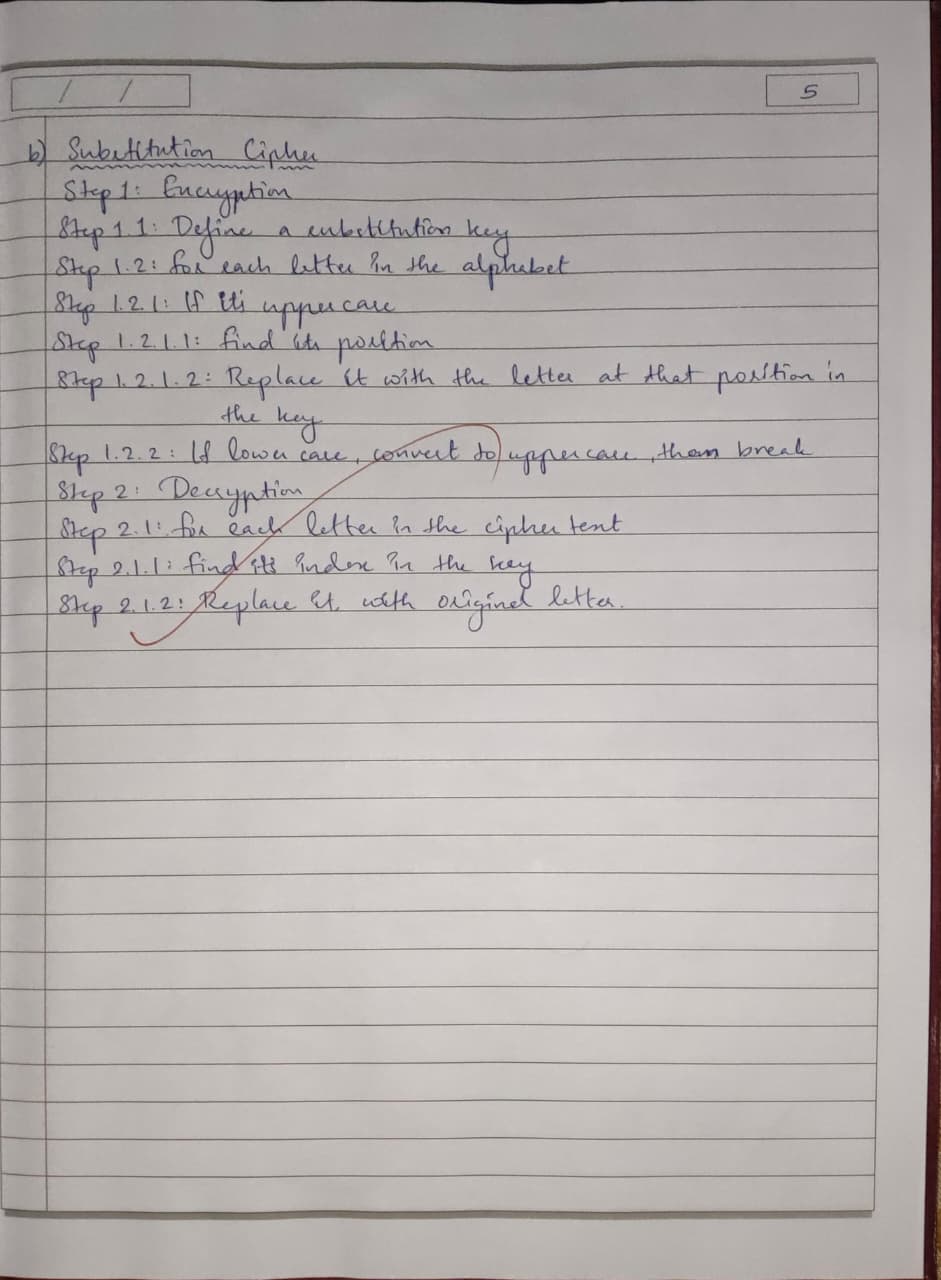 / /
5
b) Substitution Cipher
Step 1: Encryption
Step 1.1: Define a substitution key
Step 1.2: for each letter in the alphabet
Step 1.2.1: If it's uppercase
Step 1.2.1.1: find its position
Step 1.2.1.2: Replace it with the letter at that position in
the key
Step 1.2.2: If lower case, convert to uppercase, then break
Step 2: Decryption
Step 2.1: for each letter in the cipher text
Step 2.1.1: find its index in the key
Step 2.1.2: Replace it with original letter.